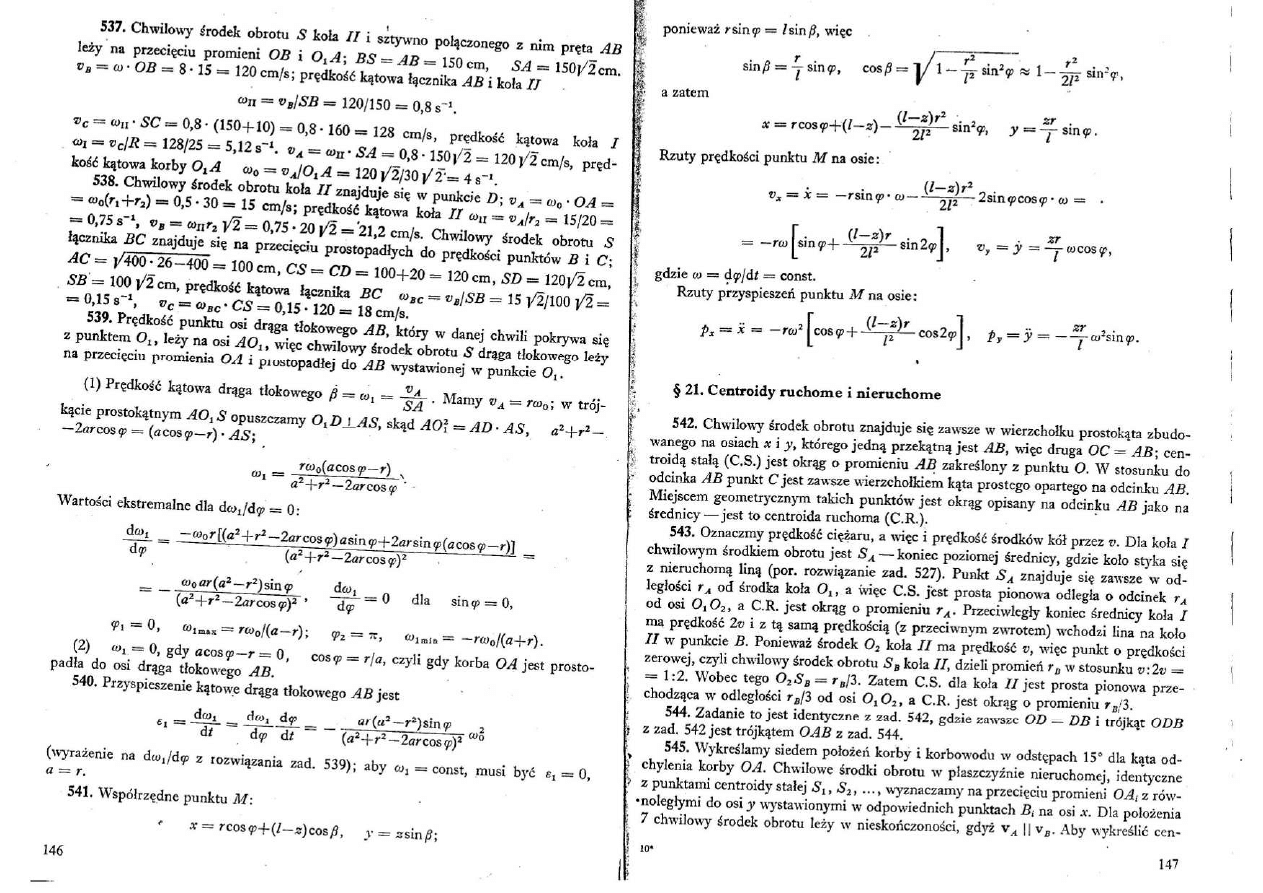 537. Chwilowy środek obrotu S koła II i sztywno połączonego z nim pręta AB
leży na przecięciu promieni OB i O₁A; BS = AB = 150 cm, SA = 150√2 cm.
v_B = ω · OB = 8 · 15 = 120 cm/s; prędkość kątowa łącznika AB i koła II
ω_II = v_B/SB = 120/150 = 0,8 s⁻¹.
v_C = ω_II · SC = 0,8 · (150+10) = 0,8 · 160 = 128 cm/s, prędkość kątowa koła I
ω_I = v_C/R = 128/25 = 5,12 s⁻¹. v_A = ω_II · SA = 0,8 · 150√2 = 120√2 cm/s, pręd-
kość kątowa korby O₁A ω₀ = v_A/O₁A = 120√2/30√2 = 4 s⁻¹.
538. Chwilowy środek obrotu koła II znajduje się w punkcie D; v_A = ω₀ · OA =
= ω₀(r₁+r₂) = 0,5 · 30 = 15 cm/s; prędkość kątowa koła II ω_II = v_A/r₂ = 15/20 =
= 0,75 s⁻¹, v_B = ω_II r₂ √2 = 0,75 · 20√2 = 21,2 cm/s. Chwilowy środek obrotu S
łącznika BC znajduje się na przecięciu prostopadłych do prędkości punktów B i C;
AC = √400 · 26−400 = 100 cm, CS = CD = 100+20 = 120 cm, SD = 120√2 cm,
SB = 100√2 cm, prędkość kątowa łącznika BC ω_BC = v_B/SB = 15√2/100√2 =
= 0,15 s⁻¹, v_C = ω_BC · CS = 0,15 · 120 = 18 cm/s.
539. Prędkość punktu osi drąga tłokowego AB, który w danej chwili pokrywa się
z punktem O₁, leży na osi AO₁, więc chwilowy środek obrotu S drąga tłokowego leży
na przecięciu promienia OA i prostopadłej do AB wystawionej w punkcie O₁.
(1) Prędkość kątowa drąga tłokowego β̇ = ω₁ = v_A/SA. Mamy v_A = rω₀; w trój-
kącie prostokątnym AO₁S opuszczamy O₁D ⊥ AS, skąd AO₁² = AD · AS, a²+r²−
−2ar cos φ = (a cos φ−r) · AS;
ω₁ = rω₀(a cos φ−r)/(a²+r²−2ar cos φ)
Wartości ekstremalne dla dω₁/dφ = 0:
dω₁/dφ = −ω₀r[(a²+r²−2ar cos φ)a sin φ+2ar sin φ(a cos φ−r)]/(a²+r²−2ar cos φ)² =
= − ω₀ar(a²−r²) sin φ/(a²+r²−2ar cos φ)², dω₁/dφ = 0 dla sin φ = 0,
φ₁ = 0, ω₁max = rω₀/(a−r); φ₂ = π, ω₁min = −rω₀/(a+r).
(2) ω₁ = 0, gdy a cos φ−r = 0, cos φ = r/a, czyli gdy korba OA jest prosto-
padła do osi drąga tłokowego AB.
540. Przyspieszenie kątowe drąga tłokowego AB jest
ε₁ = dω₁/dt = dω₁/dφ dφ/dt = − ar(a²−r²) sin φ/(a²+r²−2ar cos φ)² ω₀²
(wyrażenie na dω₁/dφ z rozwiązania zad. 539); aby ω₁ = const, musi być ε₁ = 0,
a = r.
541. Współrzędne punktu M:
x = r cos φ+(l−z) cos β, y = z sin β;
146
ponieważ r sin φ = l sin β, więc
sin β = r/l sin φ, cos β = √(1− r²/l² sin²φ) ≈ 1− r²/2l² sin²φ,
a zatem
x = r cos φ+(l−z)− (l−z)r²/2l² sin²φ, y = zr/l sin φ.
Rzuty prędkości punktu M na osie:
v_x = ẋ = −r sin φ · ω− (l−z)r²/2l² 2 sin φ cos φ · ω =
= −rω[sin φ+ (l−z)r/2l² sin 2φ], v_y = ẏ = zr/l ω cos φ,
gdzie ω = dφ/dt = const.
Rzuty przyspieszeń punktu M na osie:
p_x = ẍ = −rω²[cos φ+ (l−z)r/l² cos 2φ], p_y = ÿ = − zr/l ω² sin φ.
§ 21. Centroidy ruchome i nieruchome
542. Chwilowy środek obrotu znajduje się zawsze w wierzchołku prostokąta zbudo-
wanego na osiach x i y, którego jedną przekątną jest AB, więc druga OC = AB; cen-
troidą stałą (C.S.) jest okrąg o promieniu AB zakreślony z punktu O. W stosunku do
odcinka AB punkt C jest zawsze wierzchołkiem kąta prostego opartego na odcinku AB.
Miejscem geometrycznym takich punktów jest okrąg opisany na odcinku AB jako na
średnicy — jest to centroida ruchoma (C.R.).
543. Oznaczmy prędkość ciężaru, a więc i prędkość środków kół przez v. Dla koła I
chwilowym środkiem obrotu jest S_A — koniec poziomej średnicy, gdzie koło styka się
z nieruchomą liną (por. rozwiązanie zad. 527). Punkt S_A znajduje się zawsze w od-
ległości r_A od środka koła O₁, a więc C.S. jest prosta pionowa odległa o odcinek r_A
od osi O₁O₂, a C.R. jest okrąg o promieniu r_A. Przeciwległy koniec średnicy koła I
ma prędkość 2v i z tą samą prędkością (z przeciwnym zwrotem) wchodzi lina na koło
II w punkcie B. Ponieważ środek O₂ koła II ma prędkość v, więc punkt o prędkości
zerowej, czyli chwilowy środek obrotu S_B koła II, dzieli promień r_B w stosunku v:2v =
= 1:2. Wobec tego O₂S_B = r_B/3. Zatem C.S. dla koła II jest prosta pionowa prze-
chodząca w odległości r_B/3 od osi O₁O₂, a C.R. jest okrąg o promieniu r_B/3.
544. Zadanie to jest identyczne z zad. 542, gdzie zawsze OD = DB i trójkąt ODB
z zad. 542 jest trójkątem OAB z zad. 544.
545. Wykreślamy siedem położeń korby i korbowodu w odstępach 15° dla kąta od-
chylenia korby OA. Chwilowe środki obrotu w płaszczyźnie nieruchomej, identyczne
z punktami centroidy stałej S₁, S₂, ..., wyznaczamy na przecięciu promieni OAᵢ z rów-
noległymi do osi y wystawionymi w odpowiednich punktach Bᵢ na osi x. Dla położenia
7 chwilowy środek obrotu leży w nieskończoności, gdyż v_A || v_B. Aby wykreślić cen-
10*
147